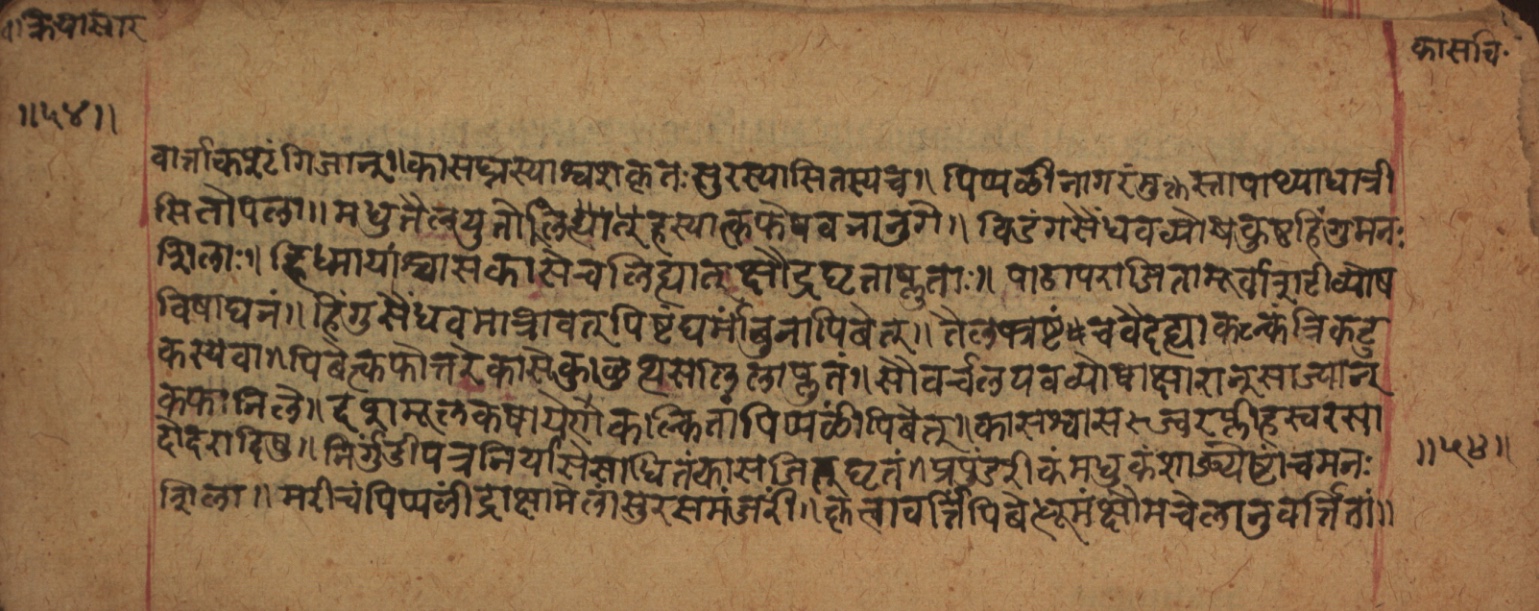 क्रियासार
कासचि.
॥५४॥
वार्त्ताकभृंगिजान्॥कासघ्नस्याश्वशकृतःसुरस्यासितस्यच॥ पिप्पळीनागरंमुक्तस्तापाथ्याधात्री
सितोपला॥ मधुतैलयुतौलिह्यात्हस्यात्कफेपवनानुगे॥ विडंगसैंधवव्योषकुष्टहिंगुमनः
शिलाः॥ हिध्मायांश्वासकासेचलिह्यात्क्षौद्रघृताप्लुताः॥ पाठापराजितामूर्वात्रुटीव्योष
विषाघनं॥ हिंगुसैंधवमात्रावत्पिष्टंघर्मांबुनापिबेत्॥ तैलभ्रष्टंचवैदेह्याकल्कंत्रिकटु
कस्यवा॥पिबेत्कफोत्तरेकासेकुळुत्थसलिलाप्लुतं॥ सौवर्चलयवव्योषाक्षारान्साज्यान्
कफानिले॥ दशमूलकषायेणकल्कितांपिप्पळींपिबेत्॥कासश्वासज्वरप्लीहस्वरसा
दोदरादिषु॥ निर्गुंडीपत्रनिर्यासेसाधितंकासजित्घृतं॥ प्रपुंडरीकंमधुकंशार्ङ्येष्टांचमनः
शिला॥ मरीचंपिप्पलींद्राक्षामेलांसुरसमंजरीं॥ कृत्वावर्त्तिंपिबेत्धूमंक्षौमचेलानुवर्त्तितां॥
॥५४॥